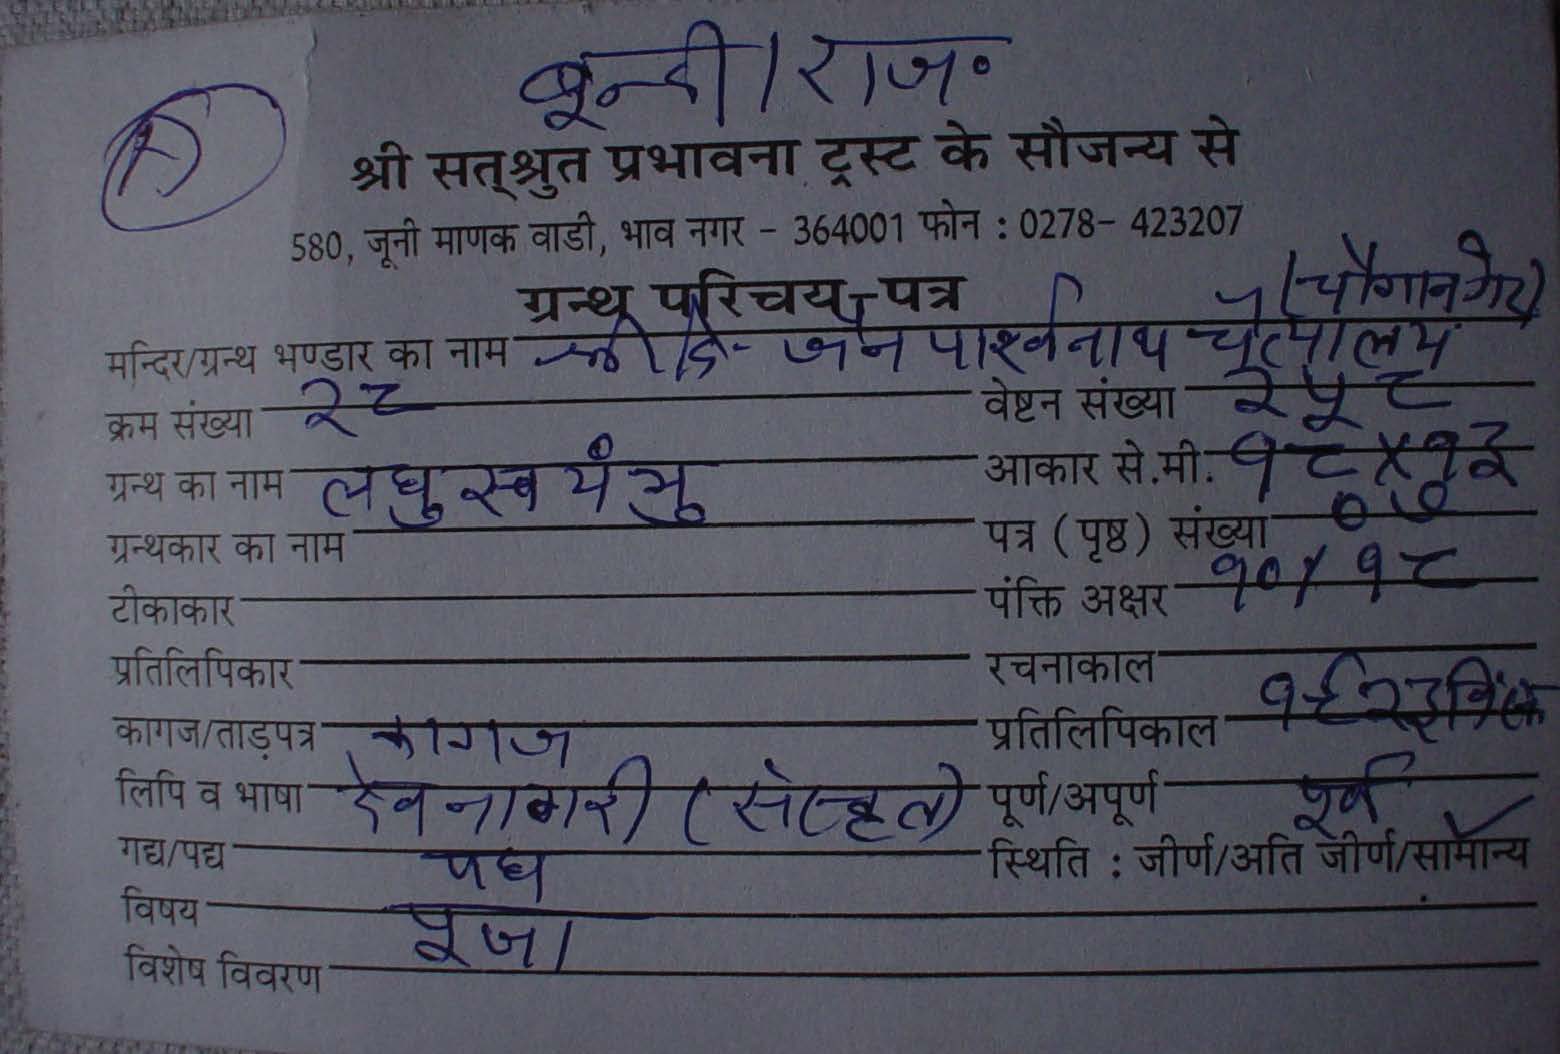 बून्दी / राज॰
A
श्री सत्श्रुत प्रभावना ट्रस्ट के सौजन्य से
580, जूनी माणक वाडी, भाव नगर - 364001 फोन : 0278- 423207
ग्रन्थ परिचय-पत्र
(चौगान गेट)
मन्दिर/ग्रन्थ भण्डार का नाम श्री दि- जैन पार्श्वनाथ चैत्यालय
क्रम संख्या २८ वेष्टन संख्या २५८
ग्रन्थ का नाम लघु स्वयंभु आकार से.मी. १८ X १३
ग्रन्थकार का नाम पत्र (पृष्ठ) संख्या
टीकाकार पंक्ति अक्षर १०/१८
प्रतिलिपिकार रचनाकाल
कागज/ताड़पत्र कागज प्रतिलिपिकाल
लिपि व भाषा देवनागरी (संस्कृत) पूर्ण/अपूर्ण पूर्ण
गद्य/पद्य पद्य स्थिति : जीर्ण/अति जीर्ण/सामान्य ✓
विषय पूजा
विशेष विवरण